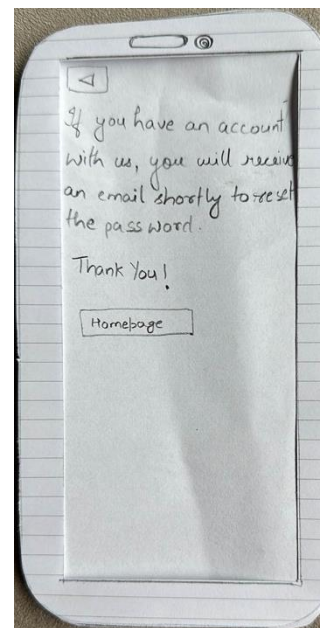 If you have an account
with us, you will receive
an email shortly to reset
the password.
Thank You!
Homepage